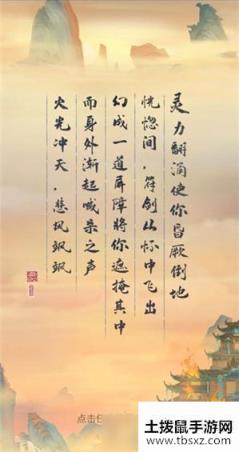 灵力翻涌使你昏厥倒地
恍惚间，符剑从怀中飞出
幻成一道屏障将你遮掩其中
而身外渐起喊杀之声
火光冲天，悲风飒飒
点击
土拨鼠手游网
www.tbsxz.com